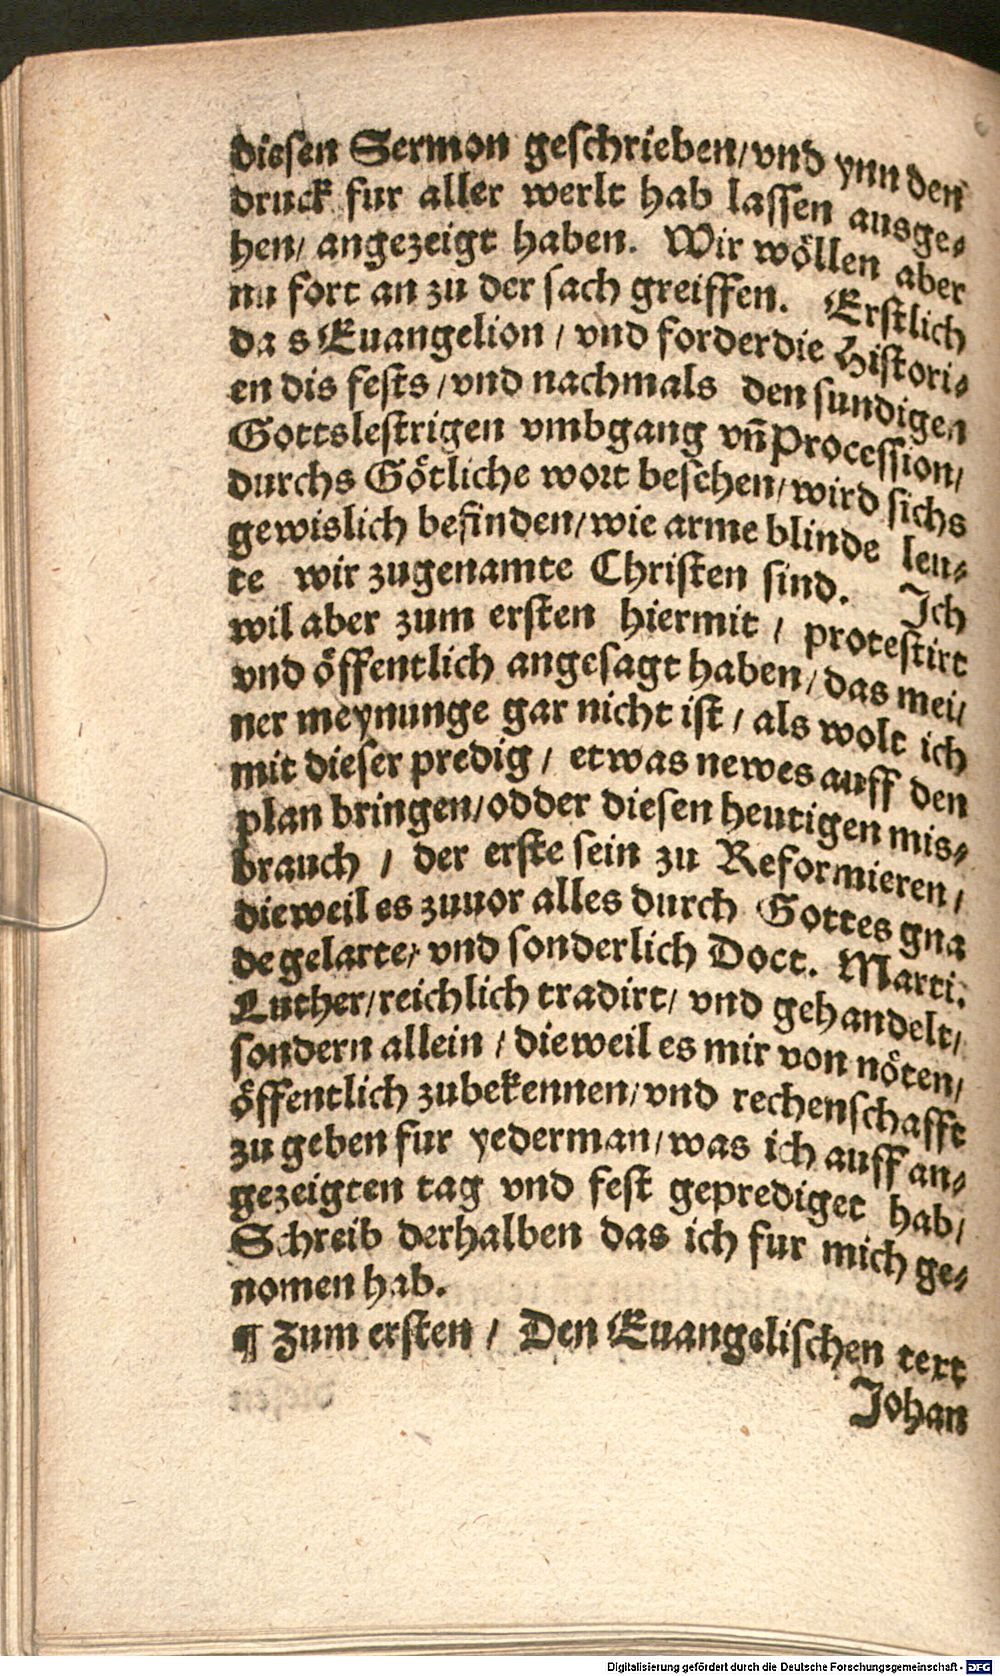 dieſen Sermon geſchrieben/vnd ynn den
druck fur aller werlt hab laſſen ausge⸗
hen/ angezeigt haben. Wir wöllen aber
nu fort an zu der ſach greiffen. Erſtlich
da s Euangelion / vnd forderdie Hiſtori⸗
en dis feſts /vnd nachmals den ſundigen
Gottsleſtrigen vmbgang vn̄ Proceſſion/
durchs Götliche wort beſehen/wird ſichs
gewislich befinden/wie arme blinde leu⸗
te wir zugenamte Chriſten ſind. Ich
wil aber zum erſten hiermit / proteſtirt
vnd öffentlich angeſagt haben/das mei/
ner meynunge gar nicht iſt / als wolt ich
mit dieſer predig / etwas newes auff den
plan bringen/odder dieſen heutigen mis⸗
brauch / der erſte ſein zu Reformieren /
dieweil es zuuor alles durch Gottes gna
de gelarte/ vnd ſonderlich Doct. Marti.
Luther/reichlich tradirt/ vnd gehandelt/
ſondern allein / dieweil es mir von nöten/
öffentlich zubekennen/vnd rechenſchafft
zu geben fur yederman/was ich auff an⸗
gezeigten tag vnd feſt geprediget hab/
Schreib derhalben das ich fur mich ge⸗
nomen hab.
¶ Zum erſten / Den Euangeliſchen text
Johan
Digitalisierung gefördert durch die Deutsche Forschungsgemeinschaft - DFG